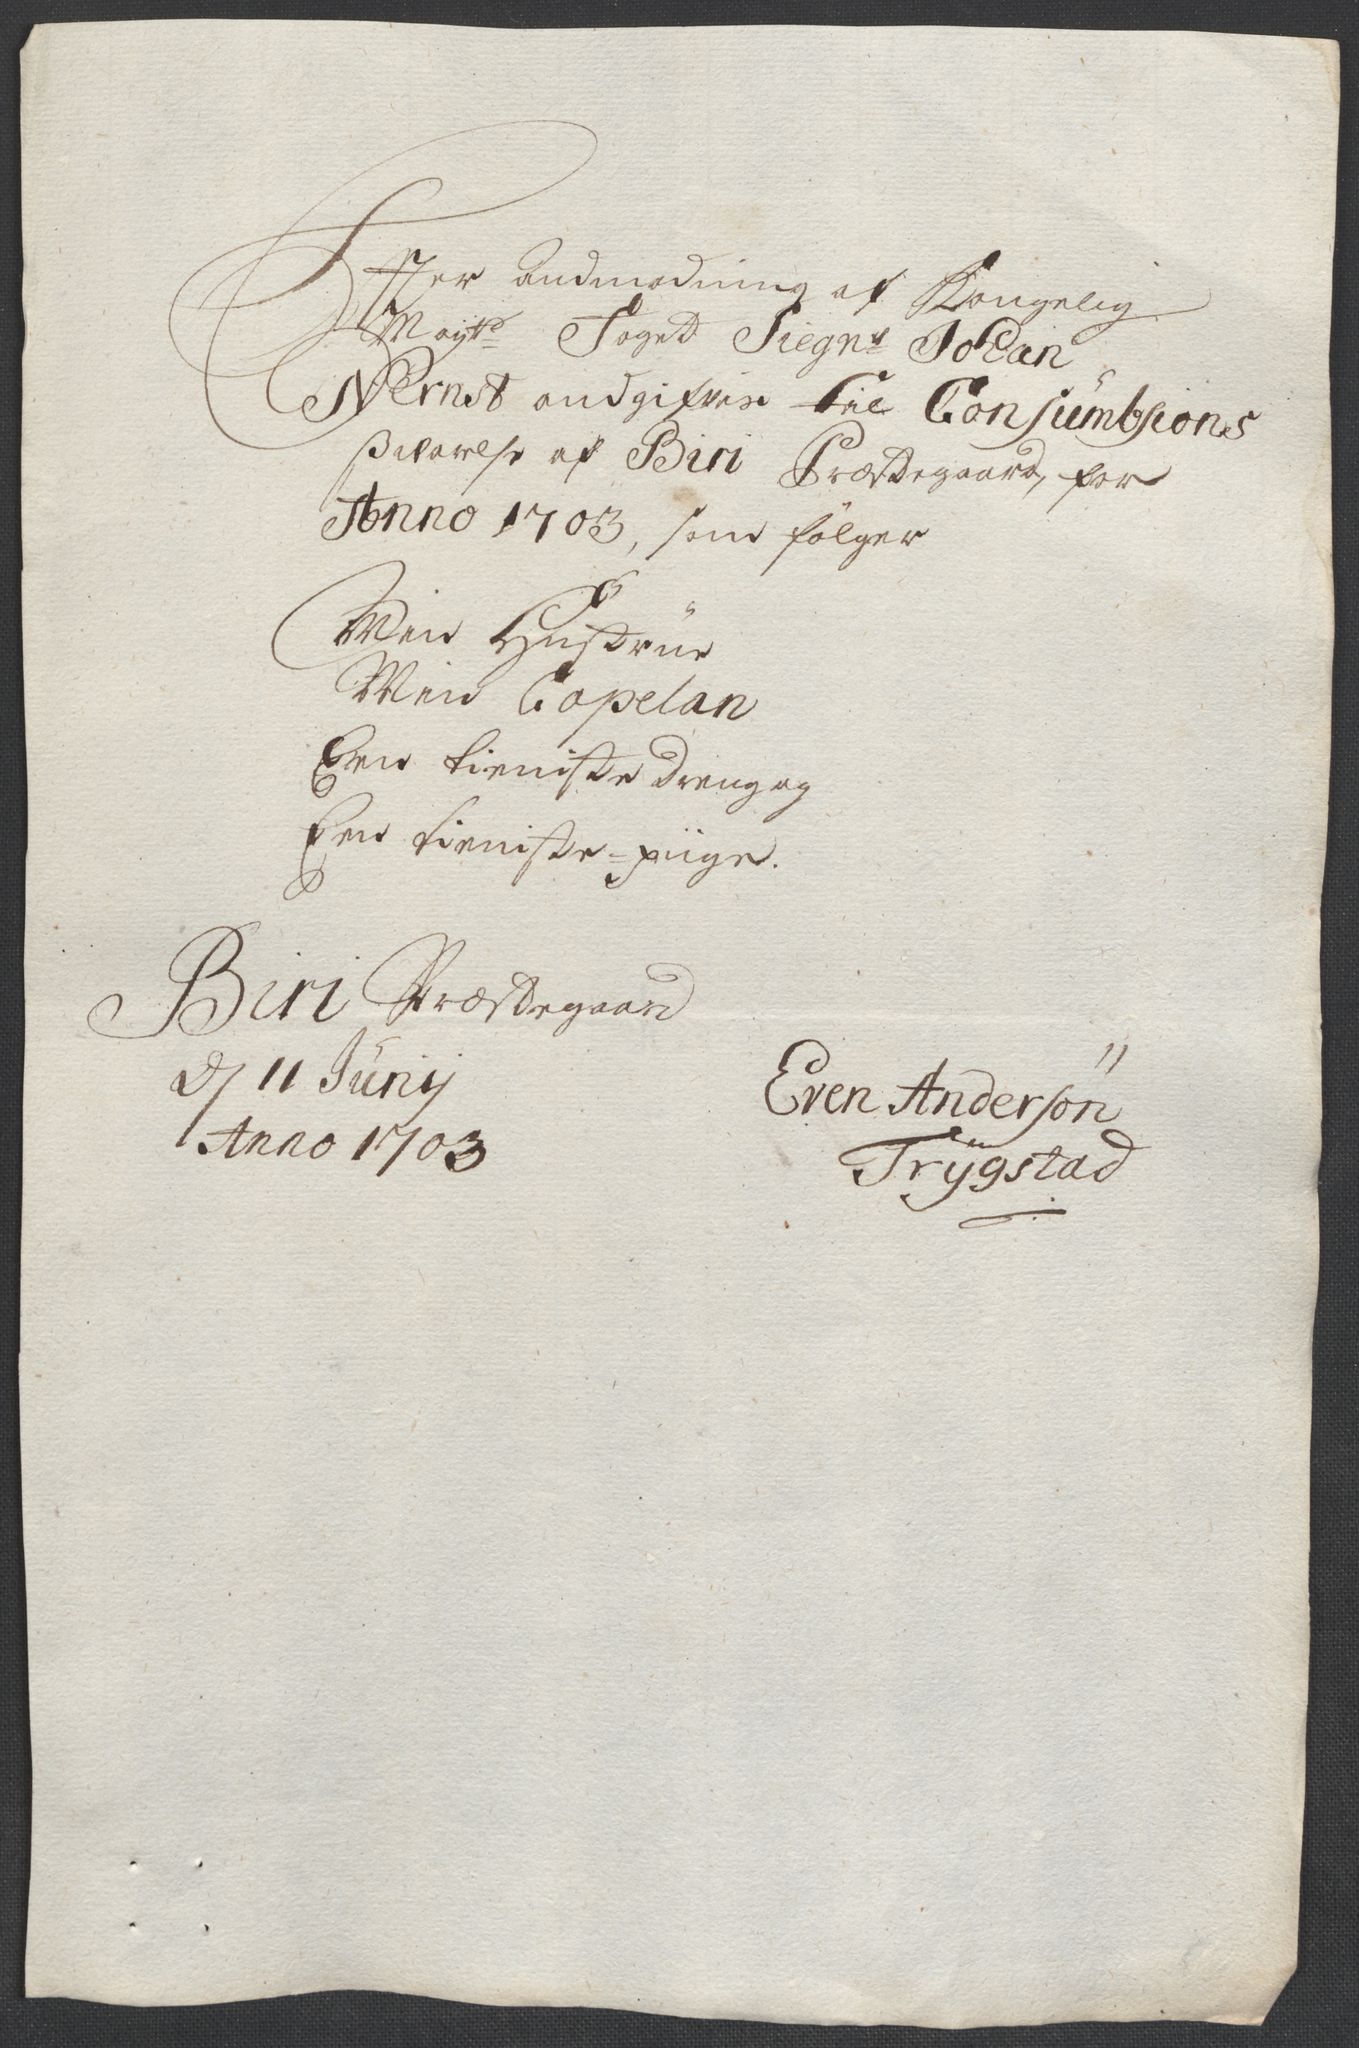 Efter andmodning af Kongelig
Mayts Foged Siegnr Johan
Wernst andgifves til Consumbsions
schatvelse af Biri Præstegaard, for
Anno 1703, som følger
Min Hustrüe
Min Capelan
Een tieniste dreng og
Een tieniste-piige.
Biri Præstegaard
d/ 11 Junij
Anno 1703
Even Andersøn
Trÿgstad